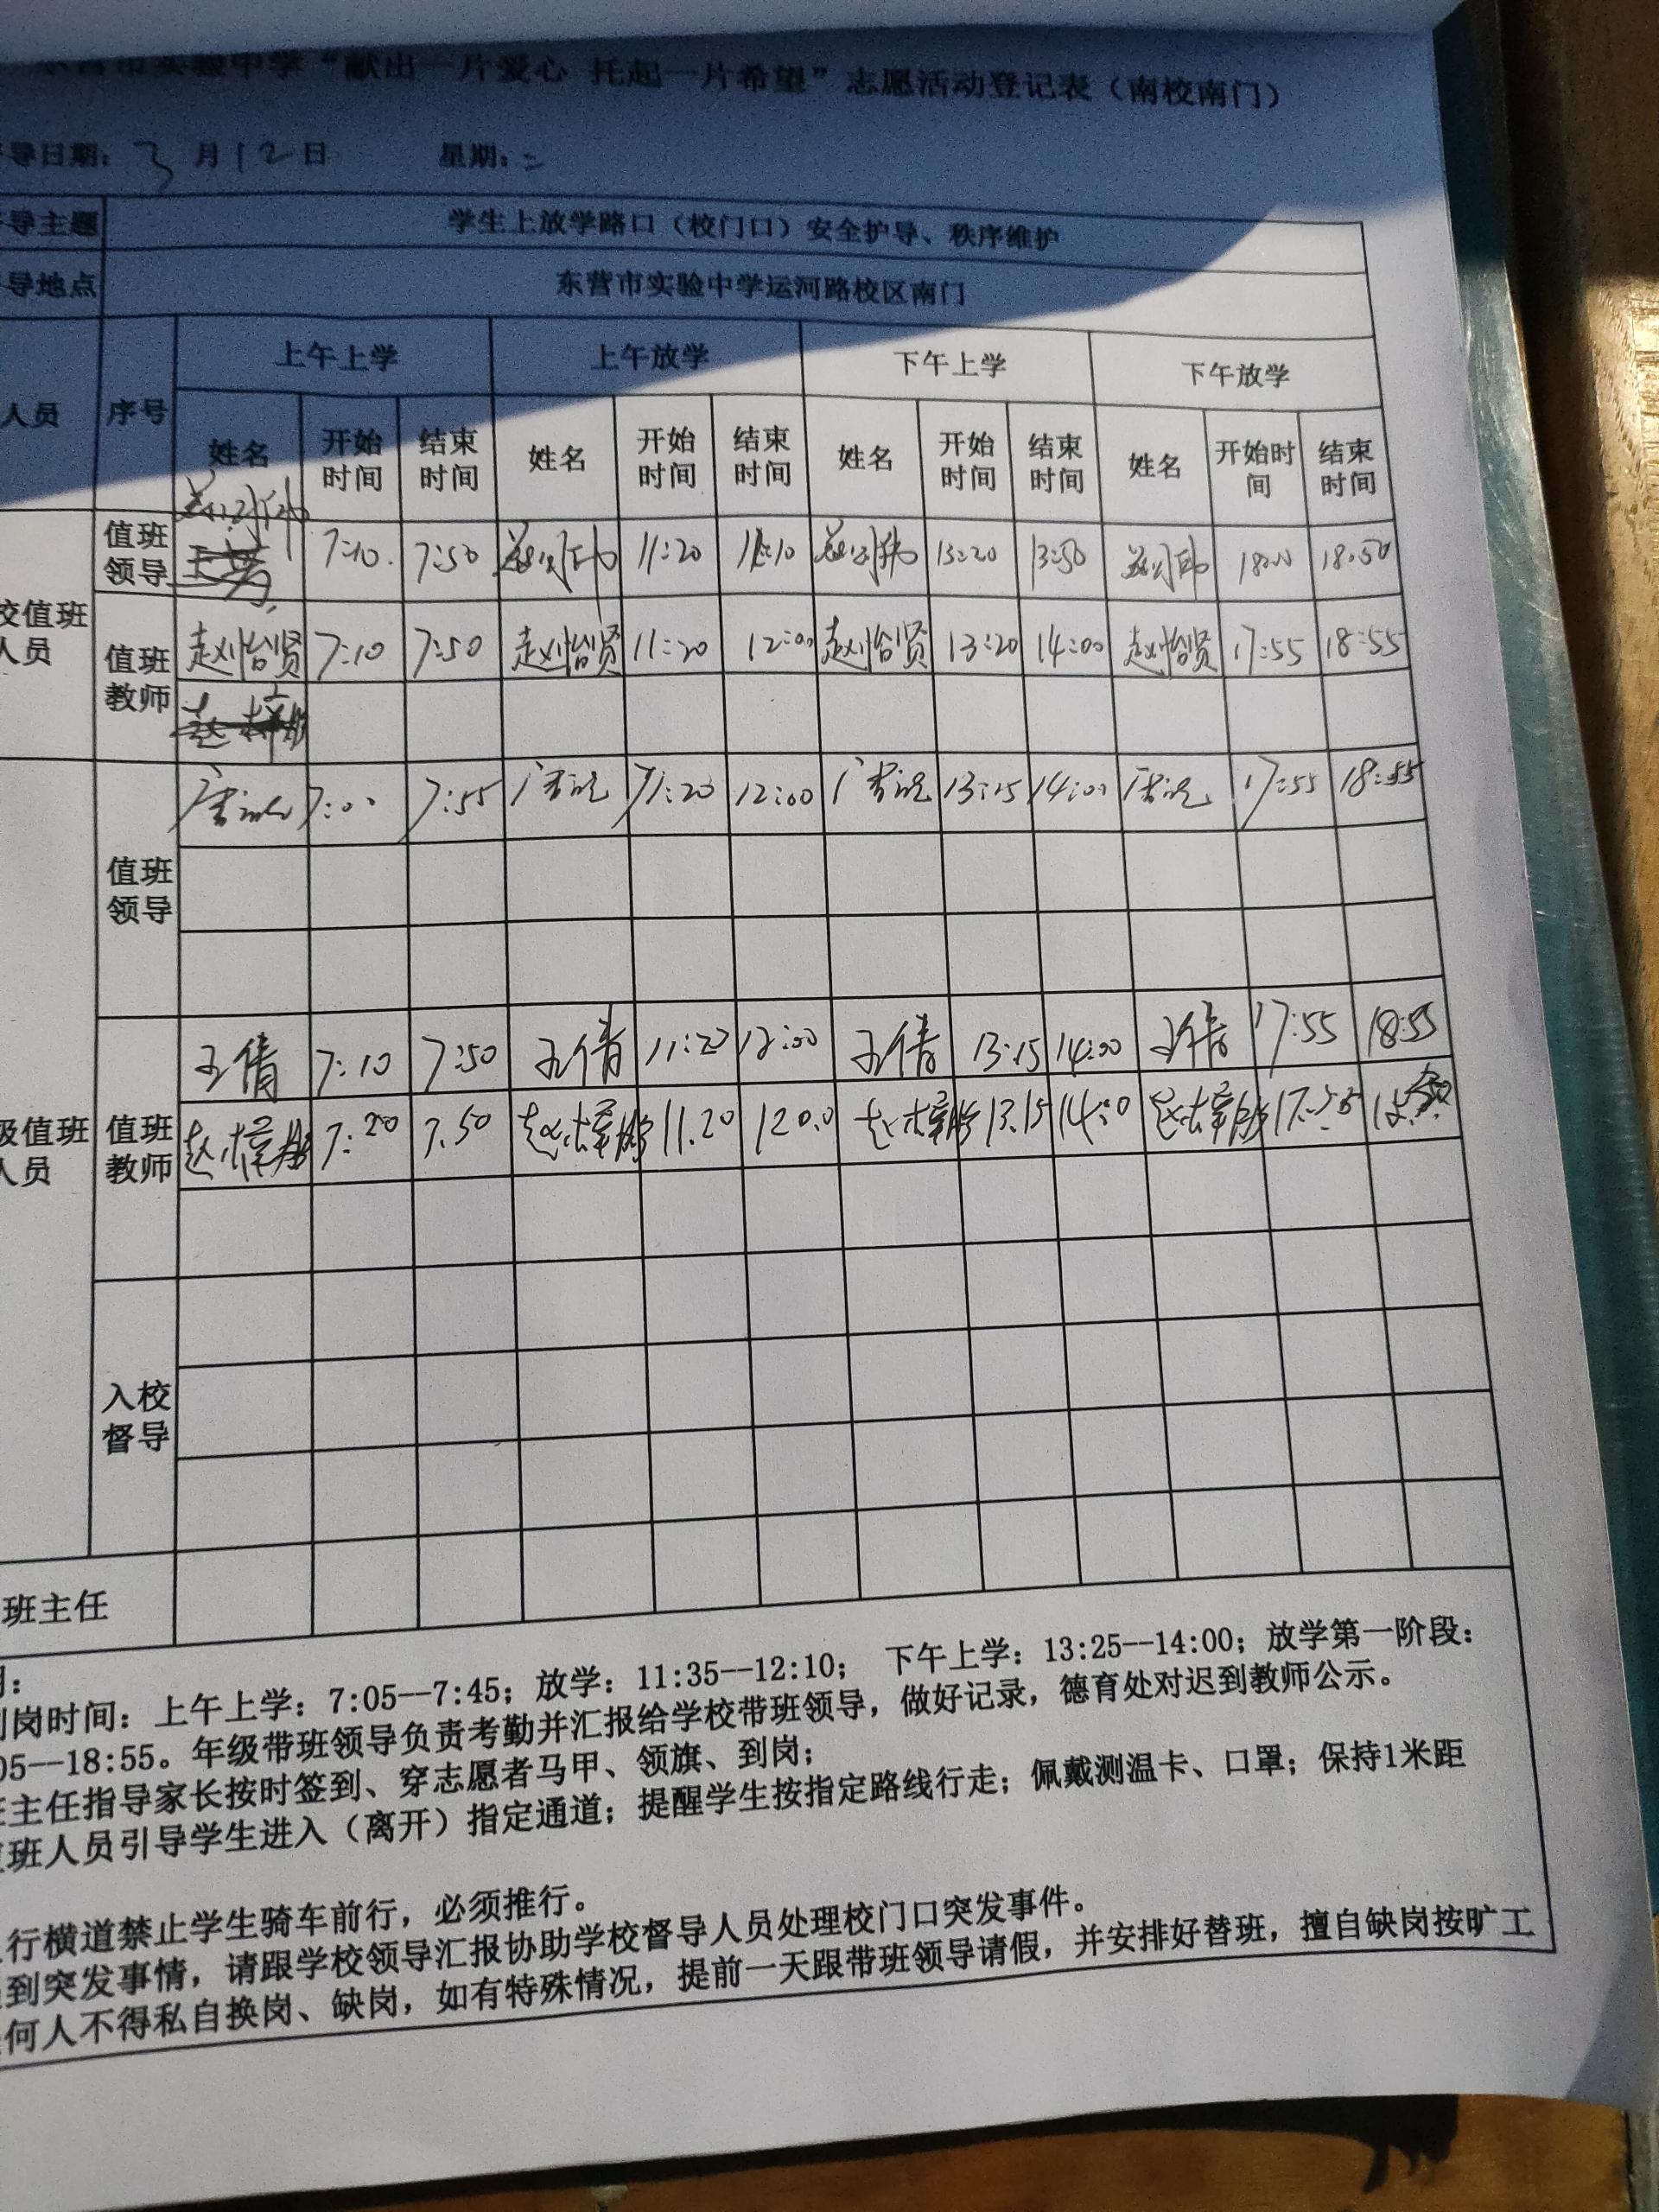 东营市实验中学“献出一片爱心 托起一片希望”志愿活动登记表（南校南门）
导日期：3月12日 星期：二
导主题 学生上放学路口（校门口）安全护导、秩序维护
导地点 东营市实验中学运河路校区南门
人员 序号 上午上学 上午放学 下午上学 下午放学
姓名 开始时间 结束时间 姓名 开始时间 结束时间 姓名 开始时间 结束时间 姓名 开始时间 结束时间
校值班人员 值班领导 7:10 7:50 11:20 13:20 13:50 18:50
值班教师 赵怡贤 7:10 7:50 赵怡贤 11:20 12:00 赵怡贤 13:20 14:00 赵怡贤 17:55 18:55
值班领导 7:00 7:55 11:20 12:00 13:15 14:00 17:55 18:55
级值班人员 值班教师 王倩 7:10 7:50 王倩 11:20 12:00 王倩 13:15 14:00 王倩 17:55 18:55
7:20 7.50 11.20 12:00 13.15 14:00
入校督导
班主任
明：
到岗时间：上午上学：7:05--7:45；放学：11:35--12:10； 下午上学：13:25--14:00；放学第一阶段：
05--18:55。年级带班领导负责考勤并汇报给学校带班领导，做好记录，德育处对迟到教师公示。
班主任指导家长按时签到、穿志愿者马甲、领旗、到岗；
值班人员引导学生进入（离开）指定通道；提醒学生按指定路线行走；佩戴测温卡、口罩；保持1米距
行横道禁止学生骑车前行，必须推行。
到突发事情，请跟学校领导汇报协助学校督导人员处理校门口突发事件。
何人不得私自换岗、缺岗，如有特殊情况，提前一天跟带班领导请假，并安排好替班，擅自缺岗按旷工